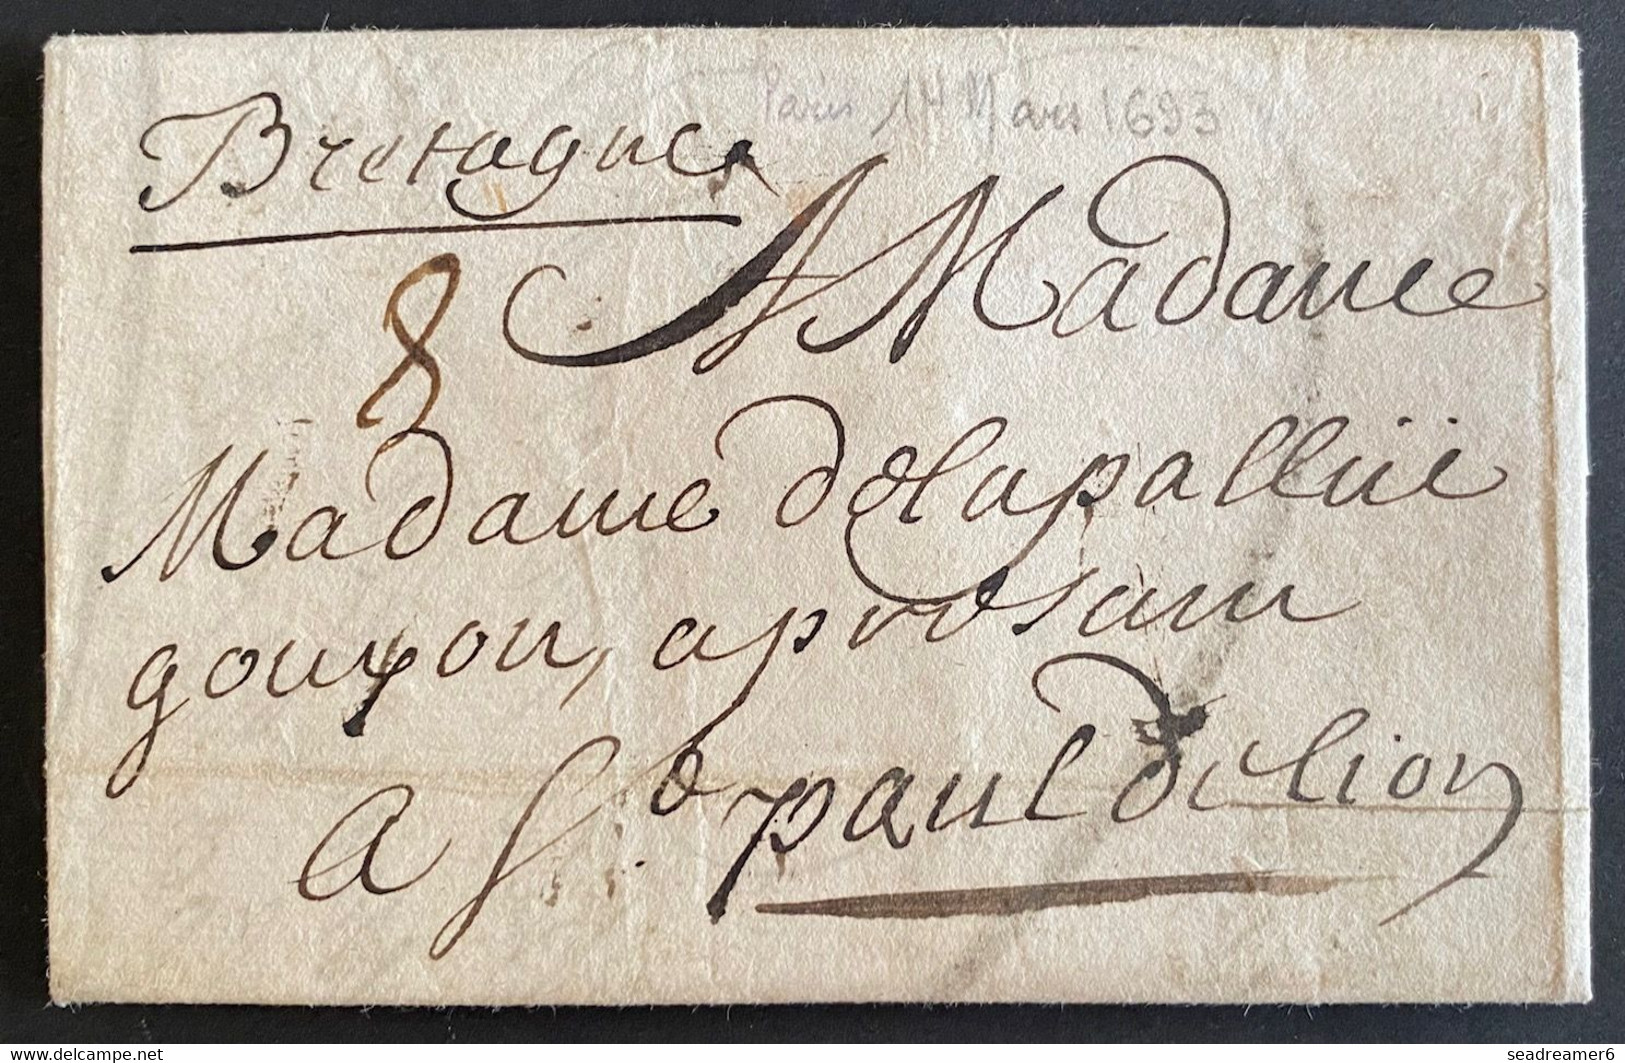 Paris 14 Mars 1693
Bretagne
8
A Madame
Madame de la pallüe
gouyon, a
a St. paul de lion
www.delcampe.net
seadreamer6